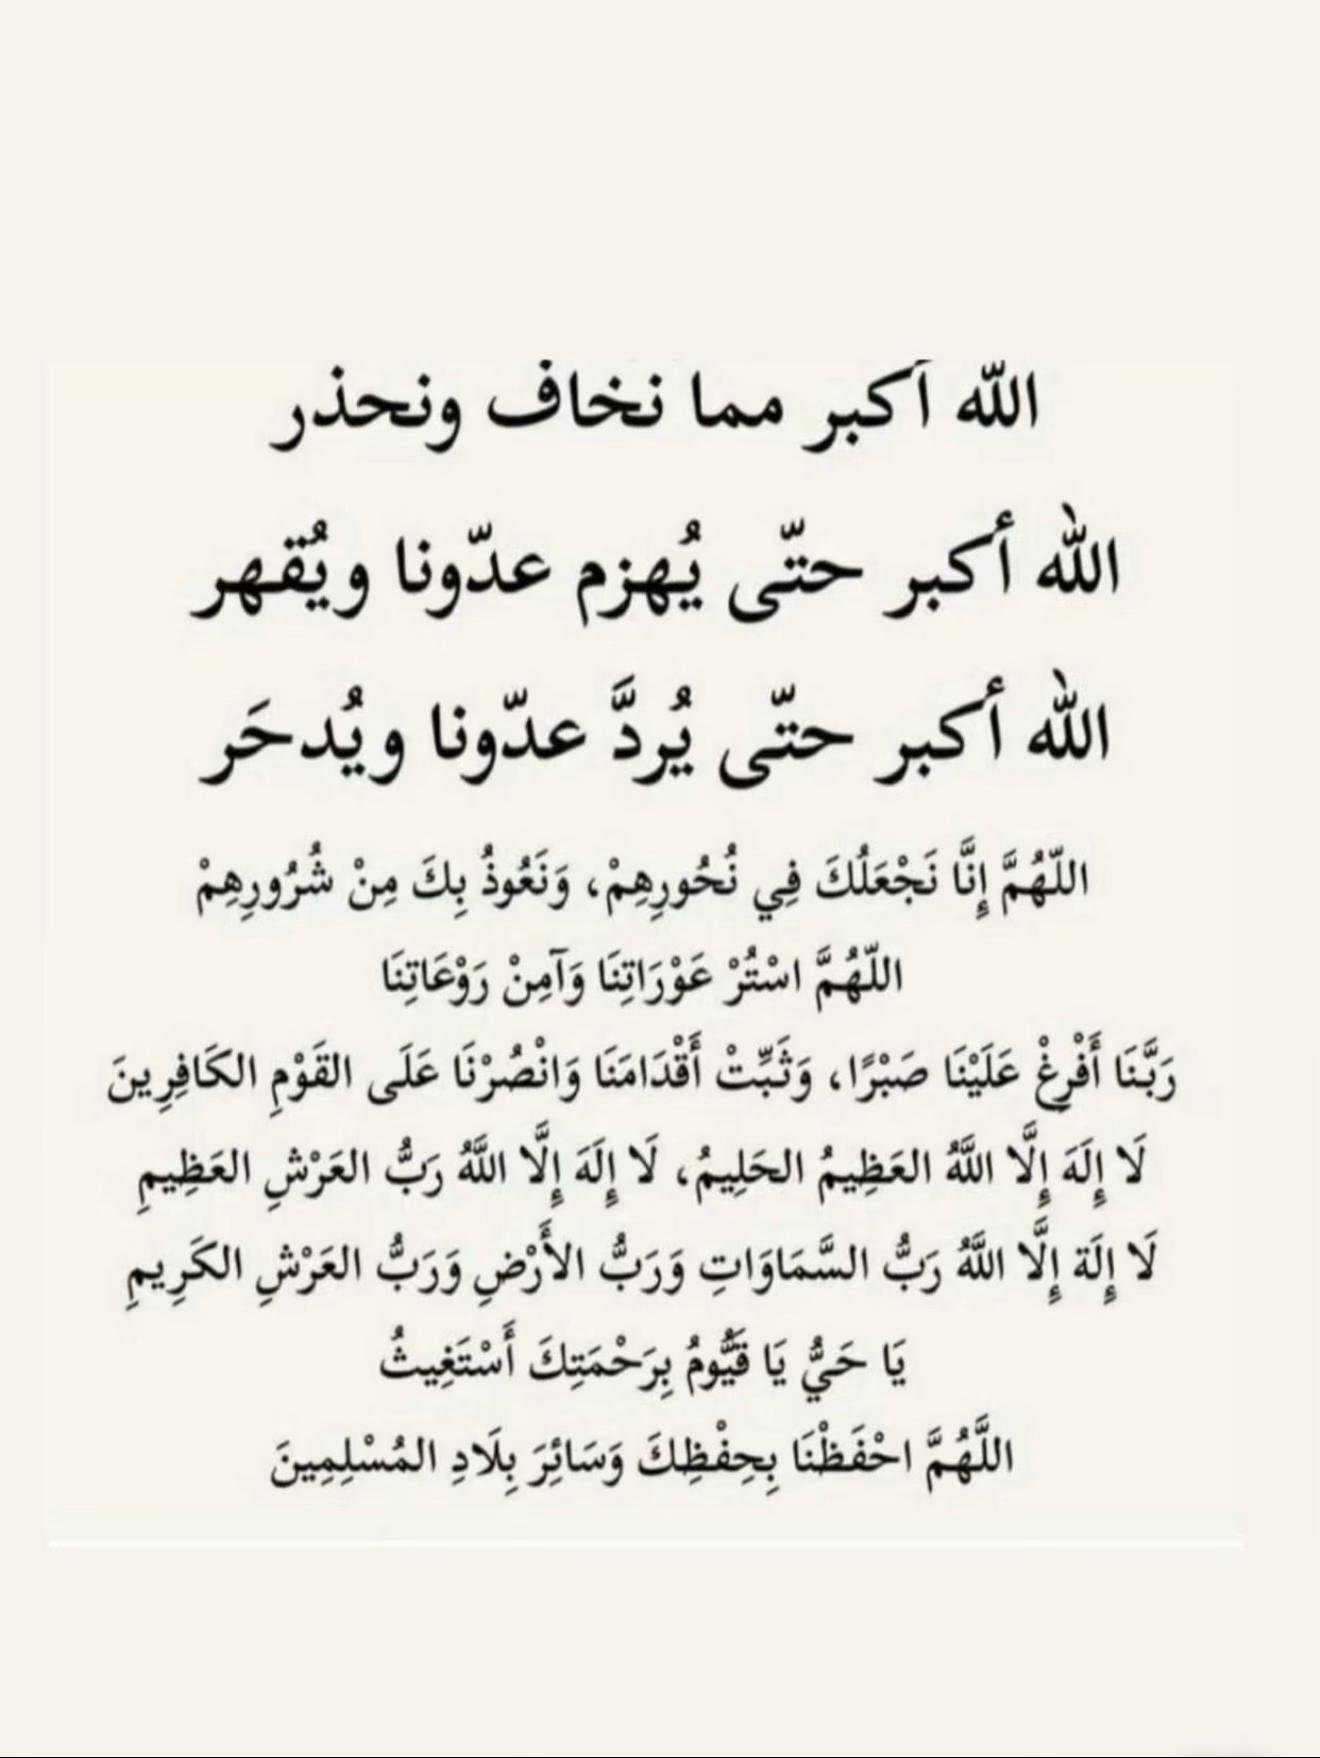 الله أكبر مما نخاف ونحذر
الله أكبر حتّى يُهزم عدّونا ويُقهر
الله أكبر حتّى يُردَّ عدّونا ويُدحَر
اللّهُمَّ إِنَّا نَجْعَلُكَ فِي نُحُورِهِمْ، وَنَعُوذُ بِكَ مِنْ شُرُورِهِمْ
اللّهُمَّ اسْتُرْ عَوْرَاتِنَا وَآمِنْ رَوْعَاتِنَا
رَبَّنَا أَفْرِغْ عَلَيْنَا صَبْرًا، وَثَبِّتْ أَقْدَامَنَا وَانْصُرْنَا عَلَى القَوْمِ الكَافِرِينَ
لَا إِلَهَ إِلَّا اللَّهُ العَظِيمُ الحَلِيمُ، لَا إِلَهَ إِلَّا اللَّهُ رَبُّ العَرْشِ العَظِيمِ
لَا إِلَة إِلَّا اللَّهُ رَبُّ السَّمَاوَاتِ وَرَبُّ الأَرْضِ وَرَبُّ العَرْشِ الكَرِيمِ
يَا حَيُّ يَا قَيُّومُ بِرَحْمَتِكَ أَسْتَغِيثُ
اللَّهُمَّ احْفَظْنَا بِحِفْظِكَ وَسَائِرَ بِلَادِ المُسْلِمِينَ